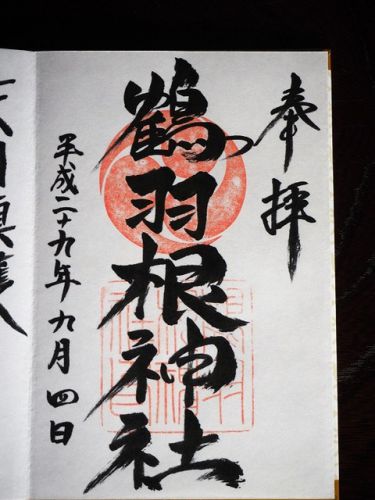 奉拝
鶴羽根神社
平成二十九年九月四日